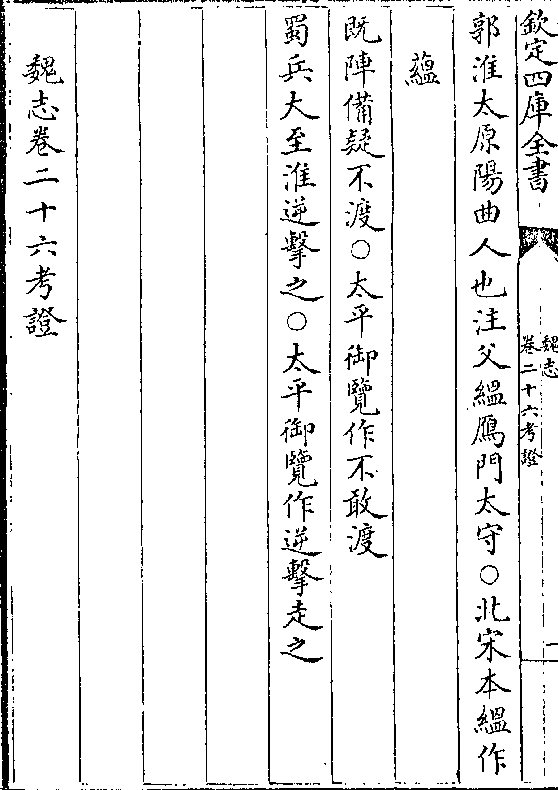 欽定四庫全書
魏志
卷二十六考證
一
郭淮太原陽曲人也注父緼鴈門太守○北宋本緼作
蘊
既陣備疑不渡○太平御覽作不敢渡
蜀兵大至淮逆擊之○太平御覽作逆擊走之
魏志卷二十六考證